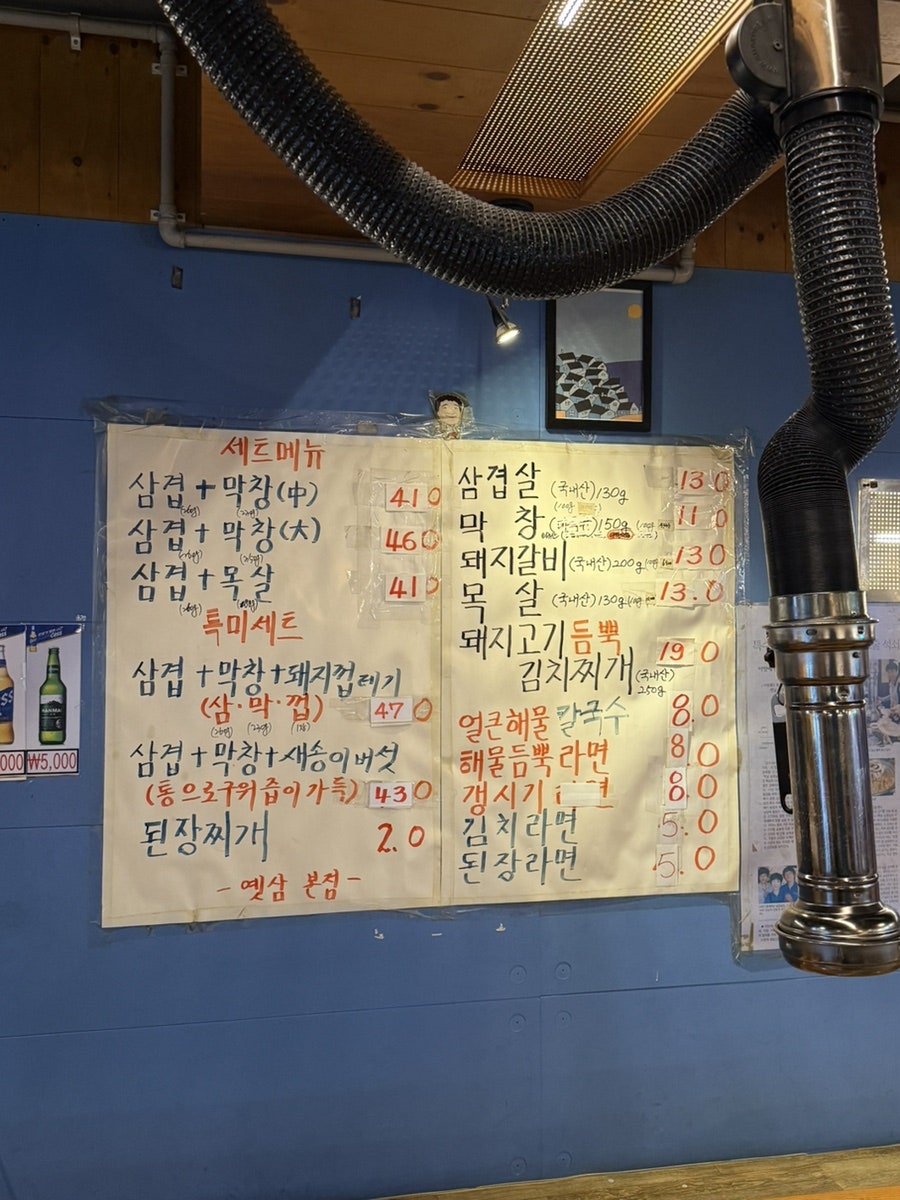 세트메뉴
삼겹+막창(中) 410
삼겹+막창(大) 460
삼겹+목살 410
특미세트
삼겹+막창+돼지껍데기
(삼·막·껍) 470
삼겹+막창+새송이버섯
(통으로구워즙이가득) 430
된장찌개 2.0
-옛삼 본점-
삼겹살 (국내산)130g 130
막창 150g 110
돼지갈비(국내산)200g 130
목살 (국내산)130g 13.0
돼지고기듬뿍
김치찌개(국내산) 250g 190
얼큰해물칼국수 8.0
해물듬뿍라면 8.0
갱시기 8.0
김치라면 5.0
된장라면 5.0
000
₩5,000